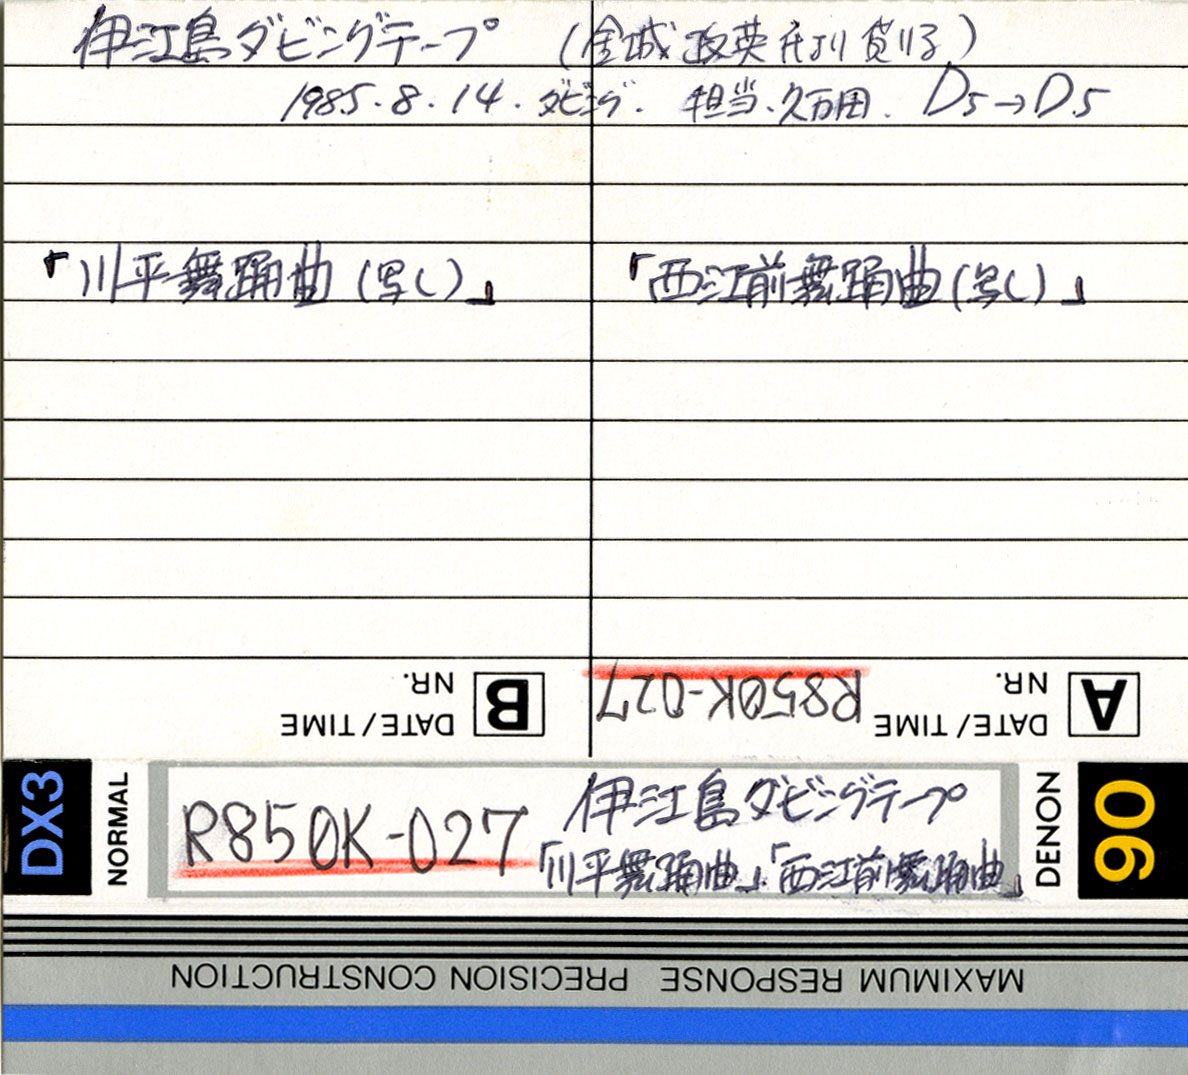 伊江島ダビングテープ (金城政英氏より借りる)
1985.8.14. ダビング. 担当、久万田. D5→D5
「川平舞踊曲(写し)」 「西江前舞踊曲(写し)」
B DATE/TIME NR.
A DATE/TIME NR. R850K-027
DX3 NORMAL
R850K-027
伊江島ダビングテープ
「川平舞踊曲」「西江前舞踊曲」
DENON 90
MAXIMUM RESPONSE PRECISION CONSTRUCTION